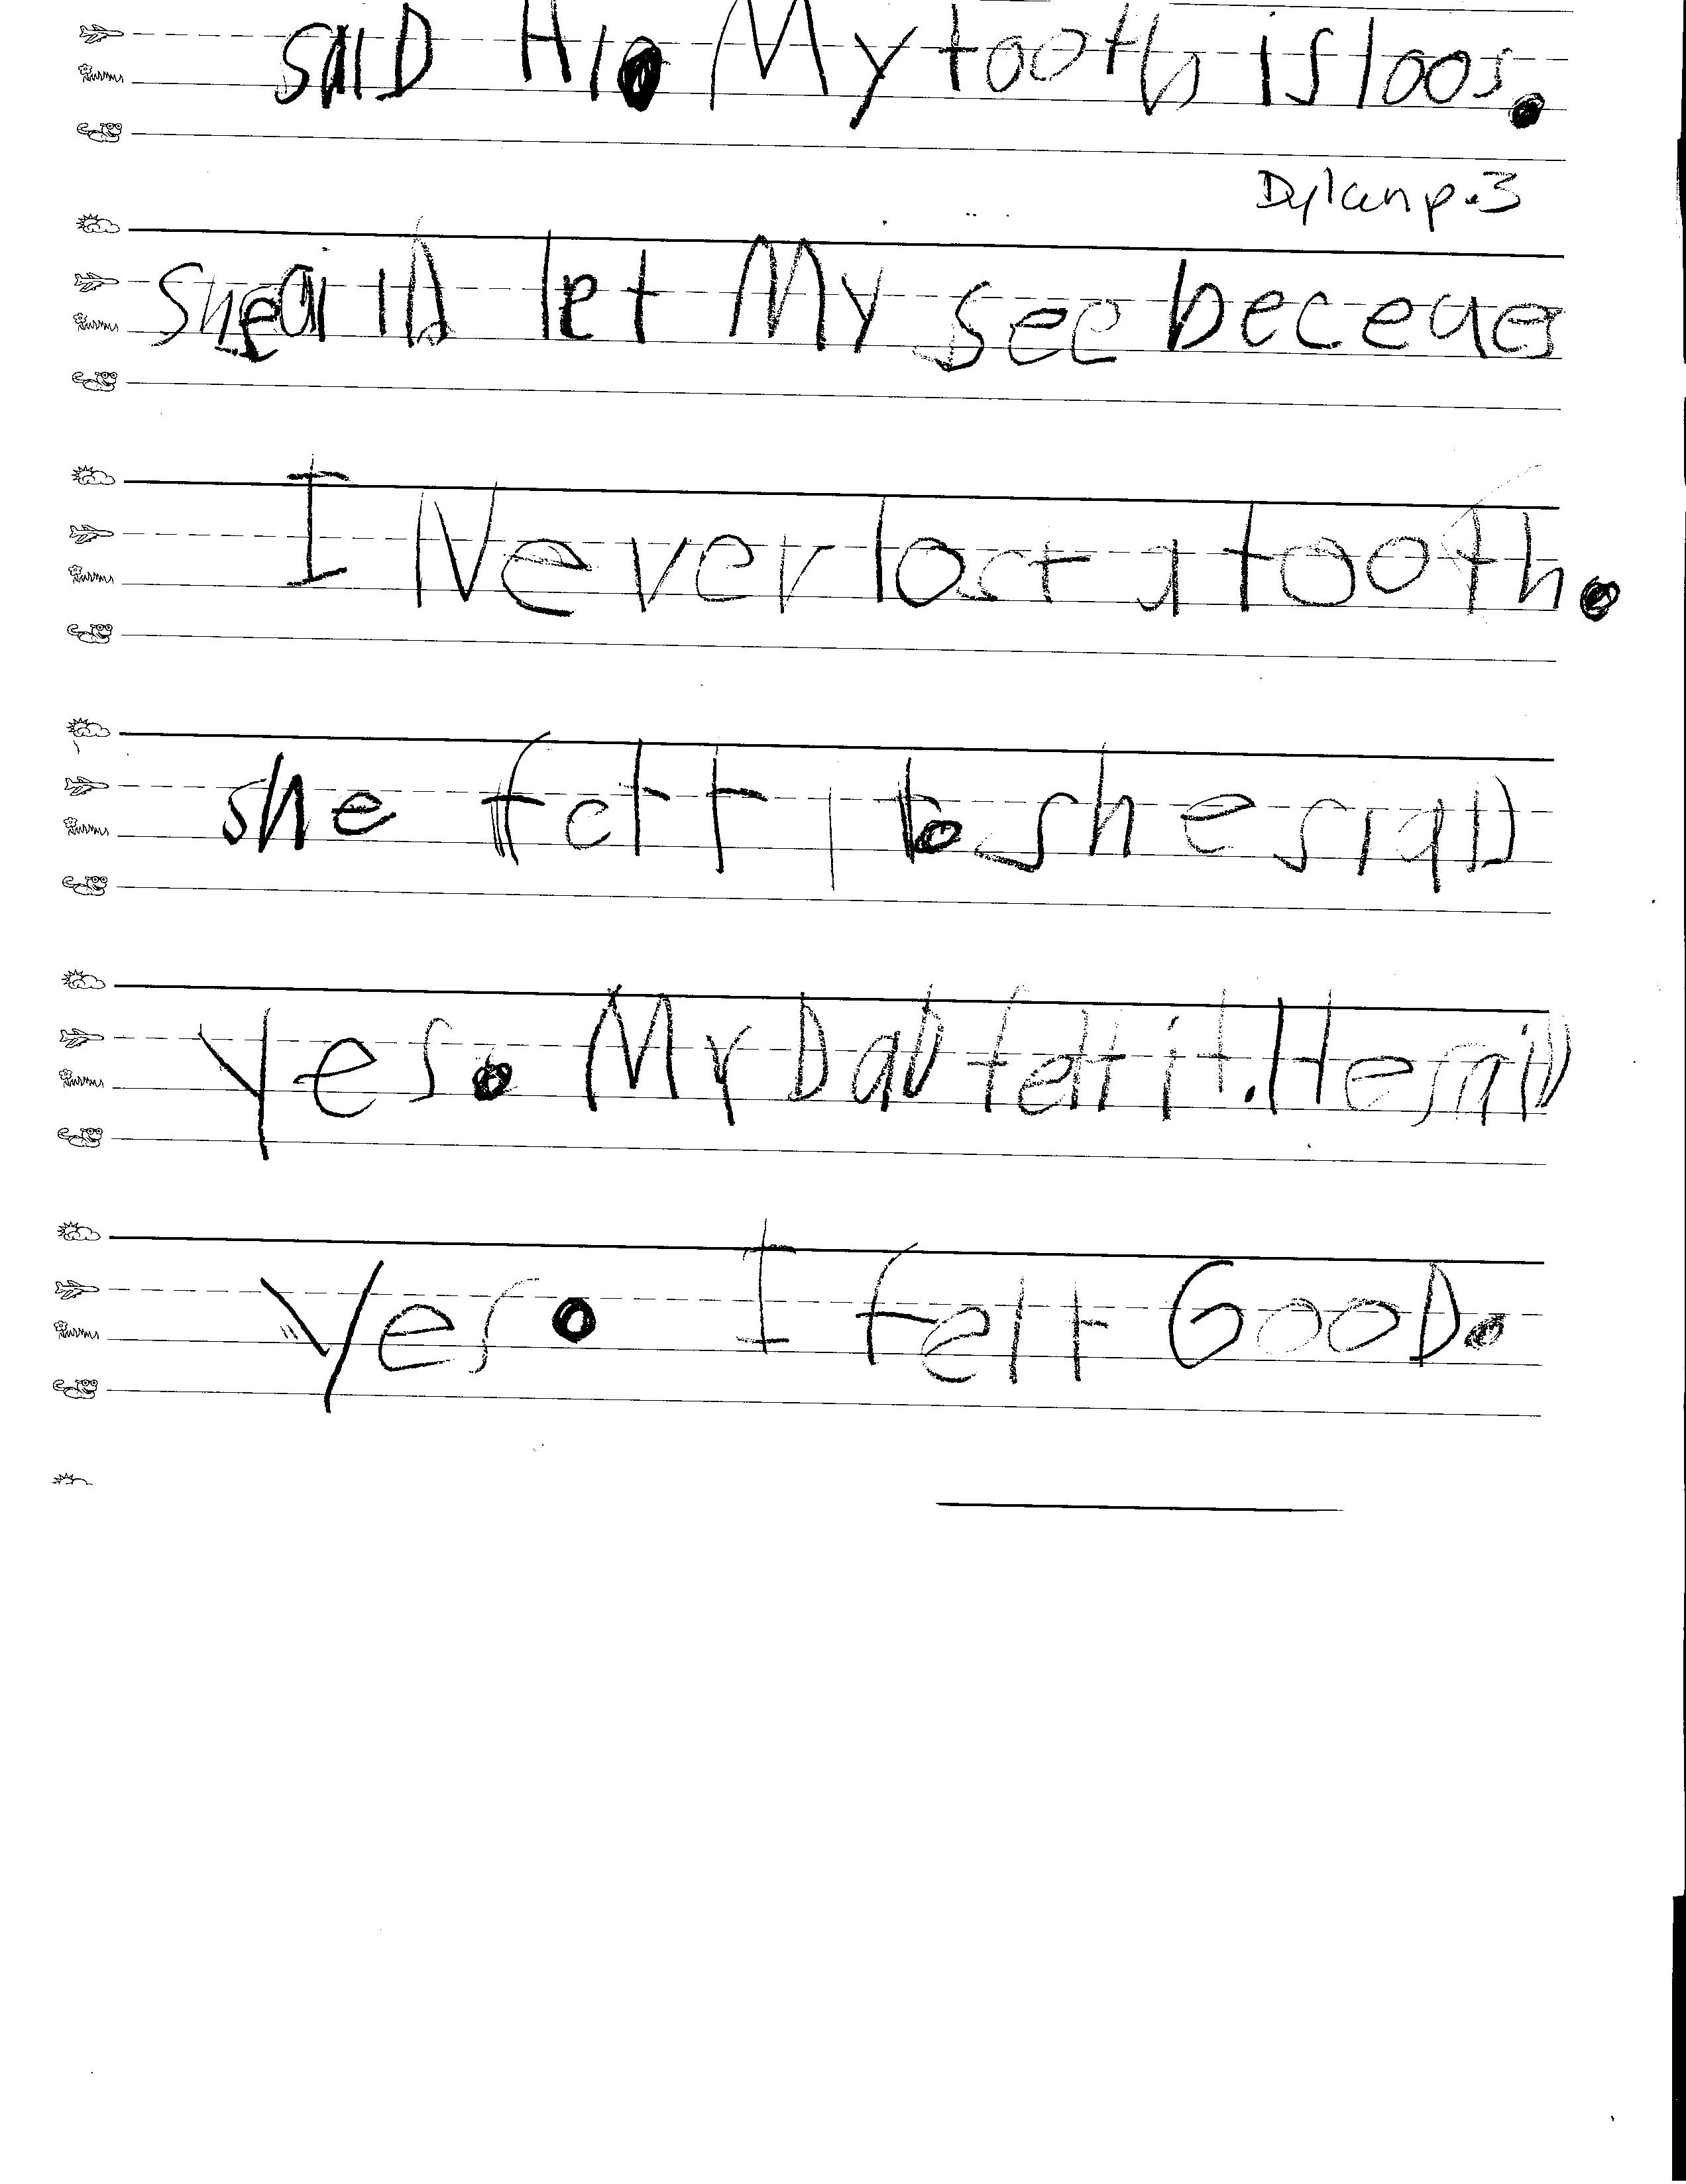 saID HI. My tooth is loos.
Dylan p.3
she saiD let My see beceues
I Never lost a tooth.
she felt it. she siaD
yes. My DaD felt it. He saiD
Yes. I felt GooD.